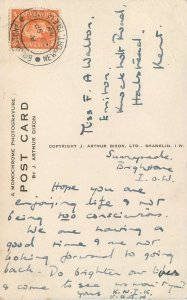 Miss F. A. Walton,
Knockholt Road,
Halstead,
Kent.
POST CARD
A MONOCHROME PHOTOGRAVURE
BY J. ARTHUR DIXON
COPYRIGHT J. ARTHUR DIXON, LTD., SHANKLIN, I.W.
Sunnymeade,
Brighstone
I.o.W.
Hope you are
enjoying life & not
being too conscientious.
We are having a
good time & are not
looking forward to going
back. Do brighten our lives
& come to see us
yours